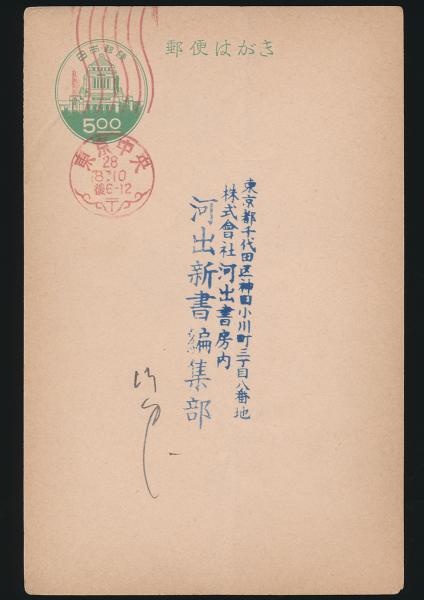 郵便はがき
日本郵便
5.00
東京中央
28
8.10
後6-12
東京都千代田区神田小川町三丁目八番地
株式會社河出書房内
河出新書編集部